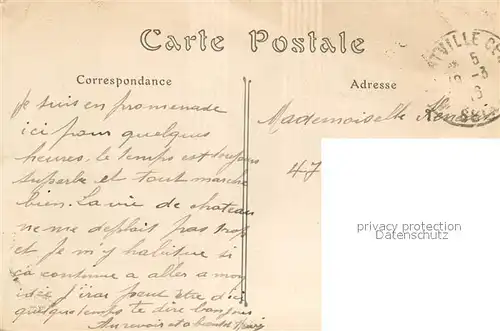 Carte Postale
Correspondance
Adresse
Je suis en promenade
ici pour quelques
heures. le temps est toujours
superbe et tout marche
bien. La vie de chateau
ne me deplait pas trop
et je m'y habitue si
ça continue a aller a mon
idée j'irai peut être d'ici
quelque temps te dire bonjour
Au revoir et a bientôt
Mademoiselle
47
privacy protection
Datenschutz